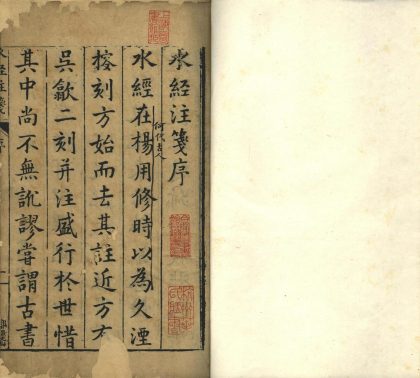 水經注箋序
水經在楊用修時以為久湮
何代古人
搉刻方始而去其註近方有
吳歙二刻并注盛行於世惜
其中尚不無訛謬嘗謂古書
水經注箋
序